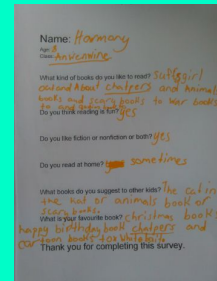 Name: Harmony
Age: 8
Class:
What kind of books do you like to read?
and About chalpers and Animals
books and scary books to war books
Do you think reading is fun? yes
Do you like fiction or nonfiction or both? yes
Do you read at home? sometimes
What books do you suggest to other kids? The cat in
the hat or animals book or
scary books.
What is your favourite book? christmas books
happy birthday book chalpers and
cartoon books too
Thank you for completing this survey.